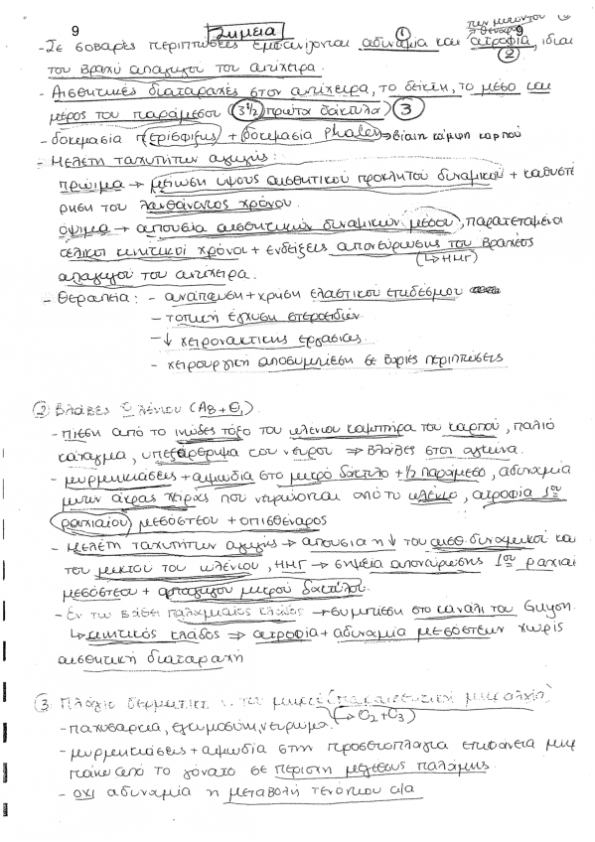 9 Σημεία 9
των μυών του
θέναρος
- Σε σοβαρές περιπτώσεις εμφανίζονται αδυναμία ① και ατροφία ②, ιδίως
του βραχύ απαγωγού του αντίχειρα.
- Αισθητικές διαταραχές στον αντίχειρα, το δείκτη, το μέσο και
μέρος του παράμεσου (3 1/2 πρώτα δάκτυλα) ③
- δοκιμασία περίσφιξης + δοκιμασία Phalen → βίαιη κάμψη καρπού
- Μελέτη ταχυτήτων αγωγής:
πρώιμα → μείωση ύψους αισθητικού προκλητού δυναμικού + καθυστέ
ρηση του λανθάνοντος χρόνου.
όψιμα → απουσία αισθητικών δυναμικών μέσου, παρατεταμένοι
τελικοί κινητικοί χρόνοι + ενδείξεις απονεύρωσης του βραχέος
απαγωγού του αντίχειρα. (↳ ΗΜΓ)
- Θεραπεία: - ανάπαυση + χρήση ελαστικού επιδέσμου
- τοπική έγχυση στεροειδών
- ↓ χειρονακτικής εργασίας
- χειρουργική αποσυμπίεση σε βαριές περιπτώσεις
② Βλάβες Ωλένιου (Α8 + Θ1)
- πίεση από το ινώδες τόξο του ωλένιου καμπτήρα του καρπού, παλιό
κάταγμα, υπεξάρθρημα του νεύρου ⇒ βλάβες στον αγκώνα.
- μυρμηκιάσεις + αιμωδία στο μικρό δάκτυλο + 1/2 παράμεσο, αδυναμία
μυών άκρας χείρας που νευρώνονται από το ωλένιο, ατροφία 1ου
ραχιαίου μεσόστεου + οπισθέναρος
- Μελέτη ταχυτήτων αγωγής → απουσία ή ↓ του αισθ. δυναμικού και
του μικτού του ωλένιου, ΗΜΓ → σημεία απονεύρωσης 1ου ραχιαί
μεσόστεου + απαγωγού μικρού δακτύλου.
- Εν τω βάθει παλαμιαίος κλάδος → συμπίεση στο κανάλι του Guyon
↳ κινητικός κλάδος ⇒ ατροφία + αδυναμία μεσόστεων χωρίς
αισθητική διαταραχή
③ Πλάγιο δερματικό ν. του μηρού (παραισθητική μηραλγία)
- παχυσαρκία, εγκυμοσύνη, νεύρωμα. (→ Ο2 + Ο3)
- μυρμηκιάσεις + αιμωδία στη προσθιοπλάγια επιφάνεια μηρ
πάνω από το γόνατο σε περιοχή μεγέθους παλάμης
- όχι αδυναμία ή μεταβολή τενόντιου α/α